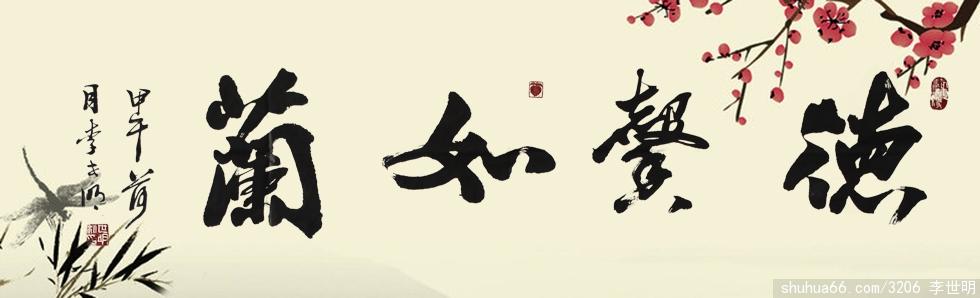 德馨如蘭
甲午荷
月李世明
shuhua66.com/3206 李世明